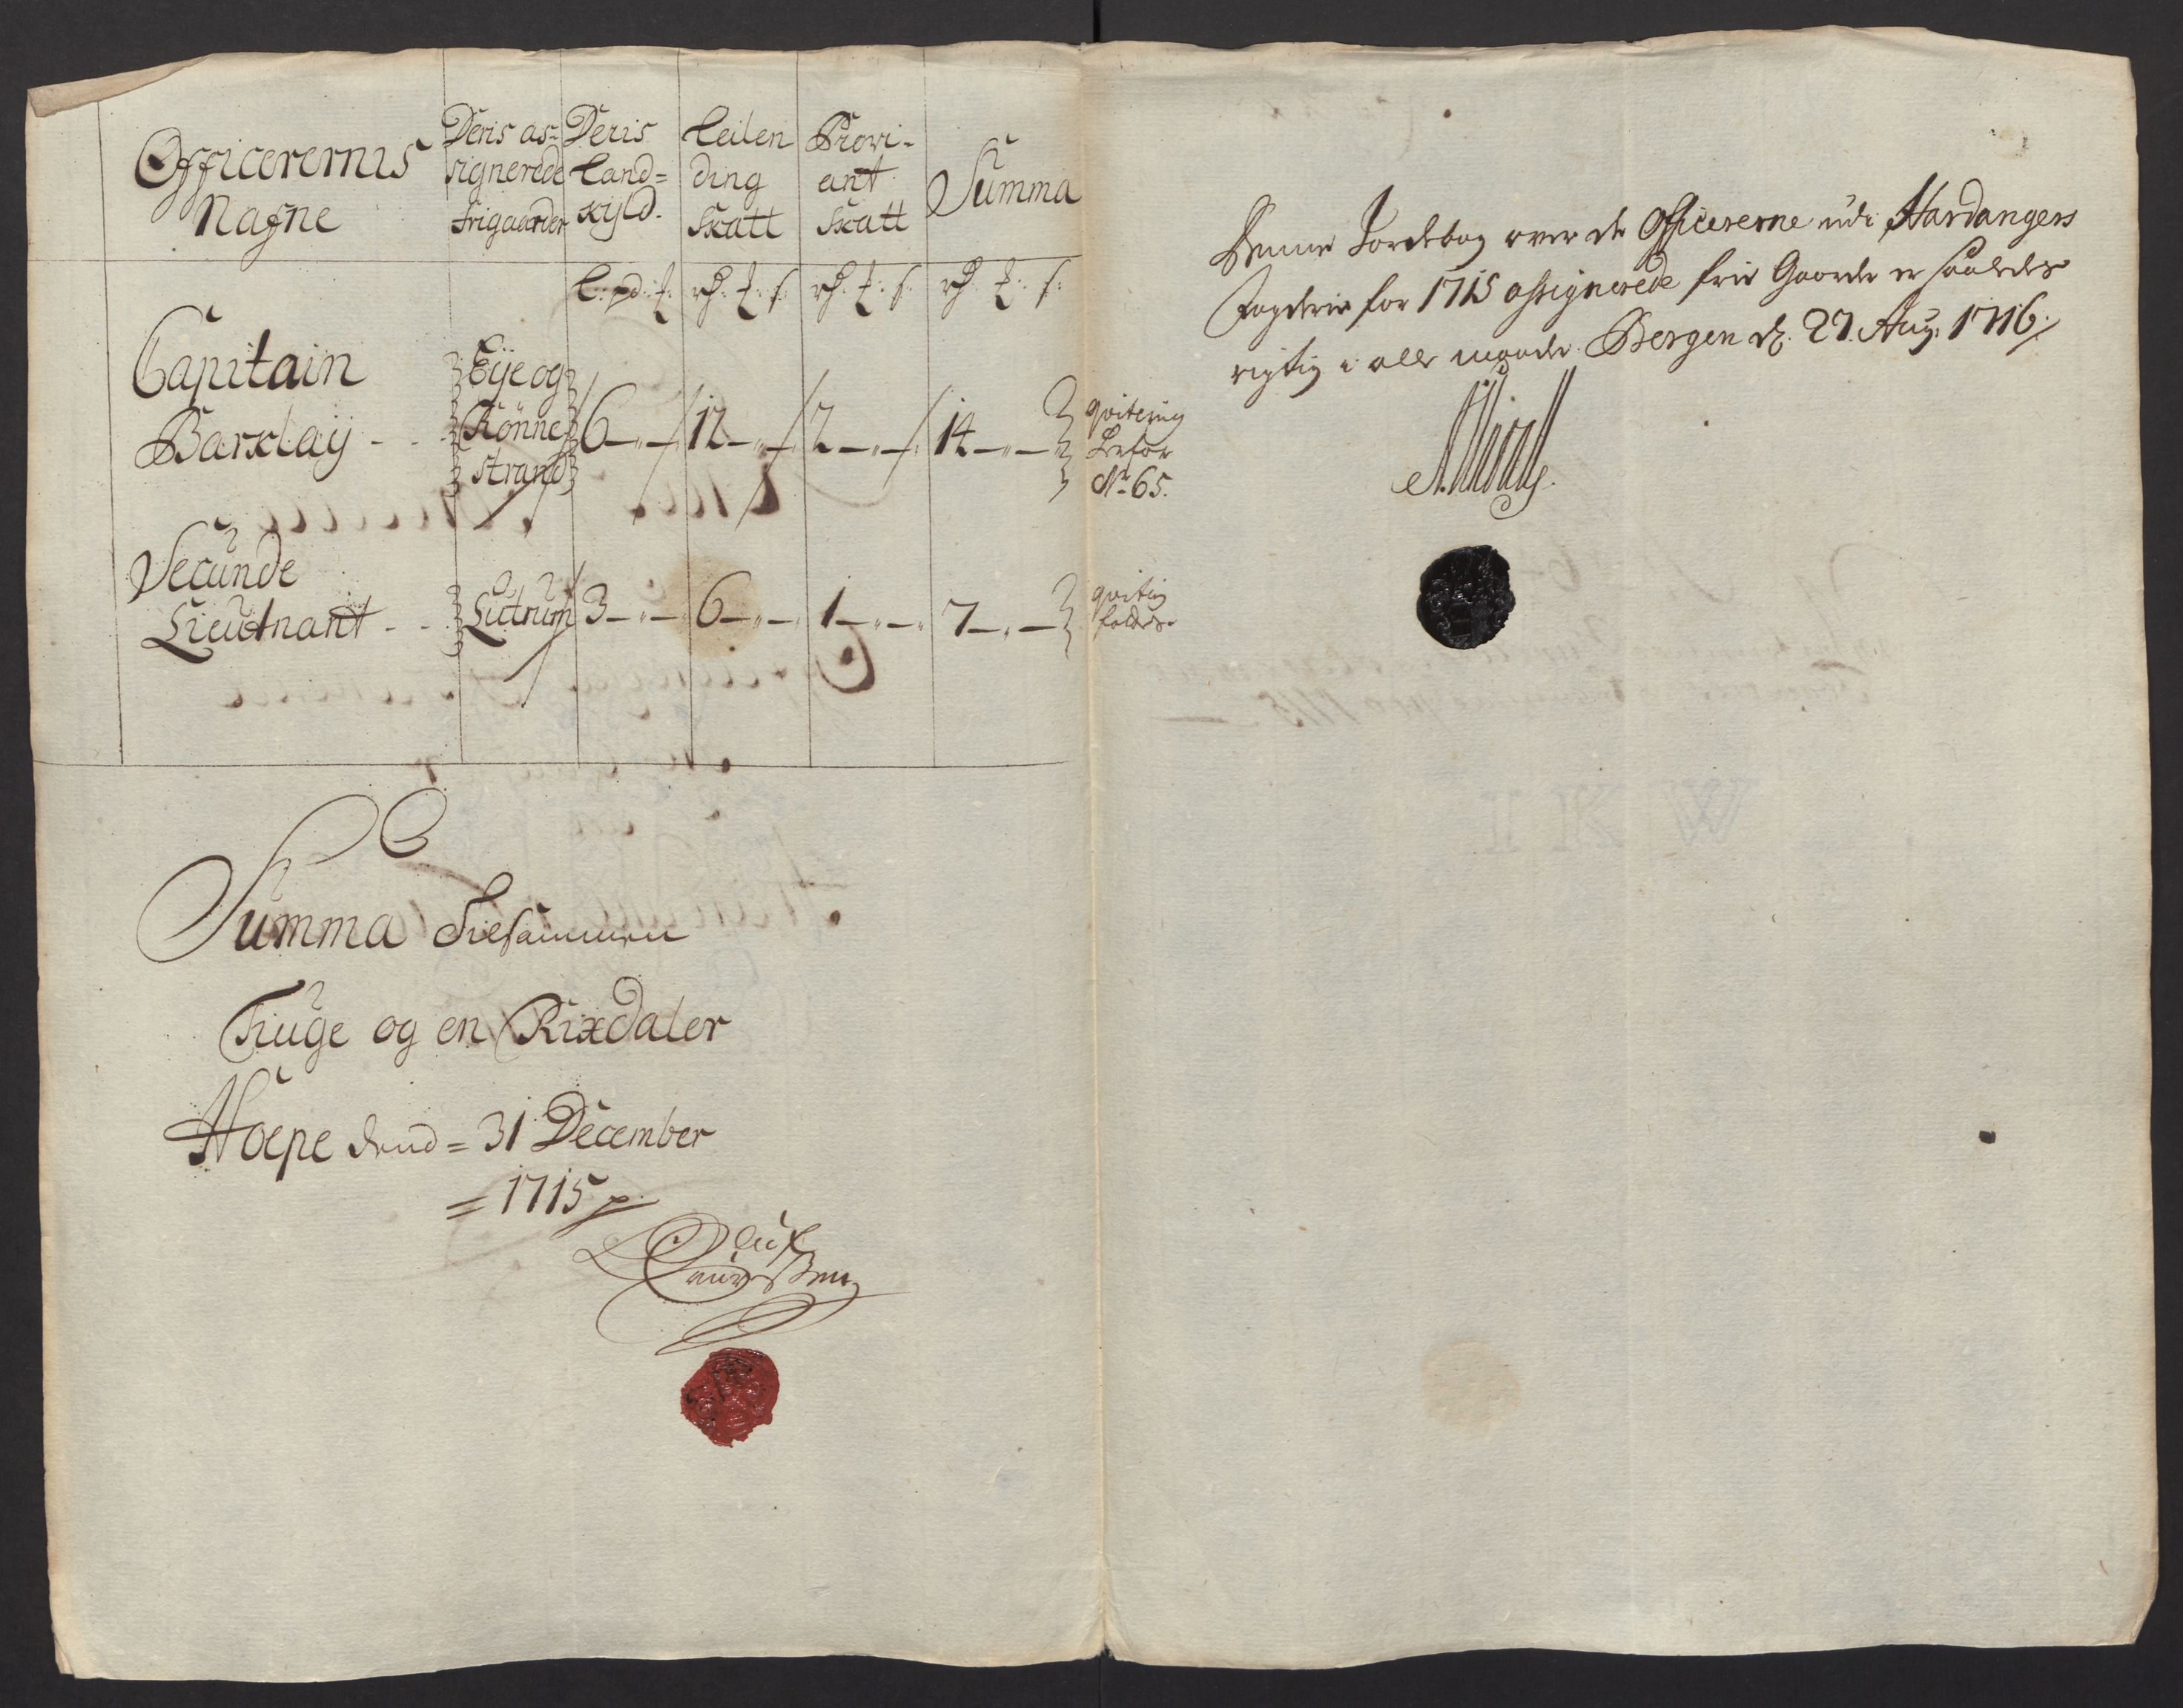 Officerernis
Nafne
Deris as=
signerede
frigaarder
Deris
Land=
skyld.
Leilen
ding
Skatt
Provi-
ant
Skatt
Summa
Capitain
Barclaÿ - -
Eÿe og
Rönne
Strand
6 12 2 14
qvitering
No 65.
Secunde
Lieutnant - -
Lutrum
3 6 1 7
Summa Tilsammen
Tiuge og en Rixdaler
Hoepe dend = 31 December
= 1715
Denne Jordebog over de Officererne udi Hardangers
Fogderie for 1715 assignerede frie Gaarder er saaledes
rigtig i alle maader. Bergen d. 27. Aug: 1716.